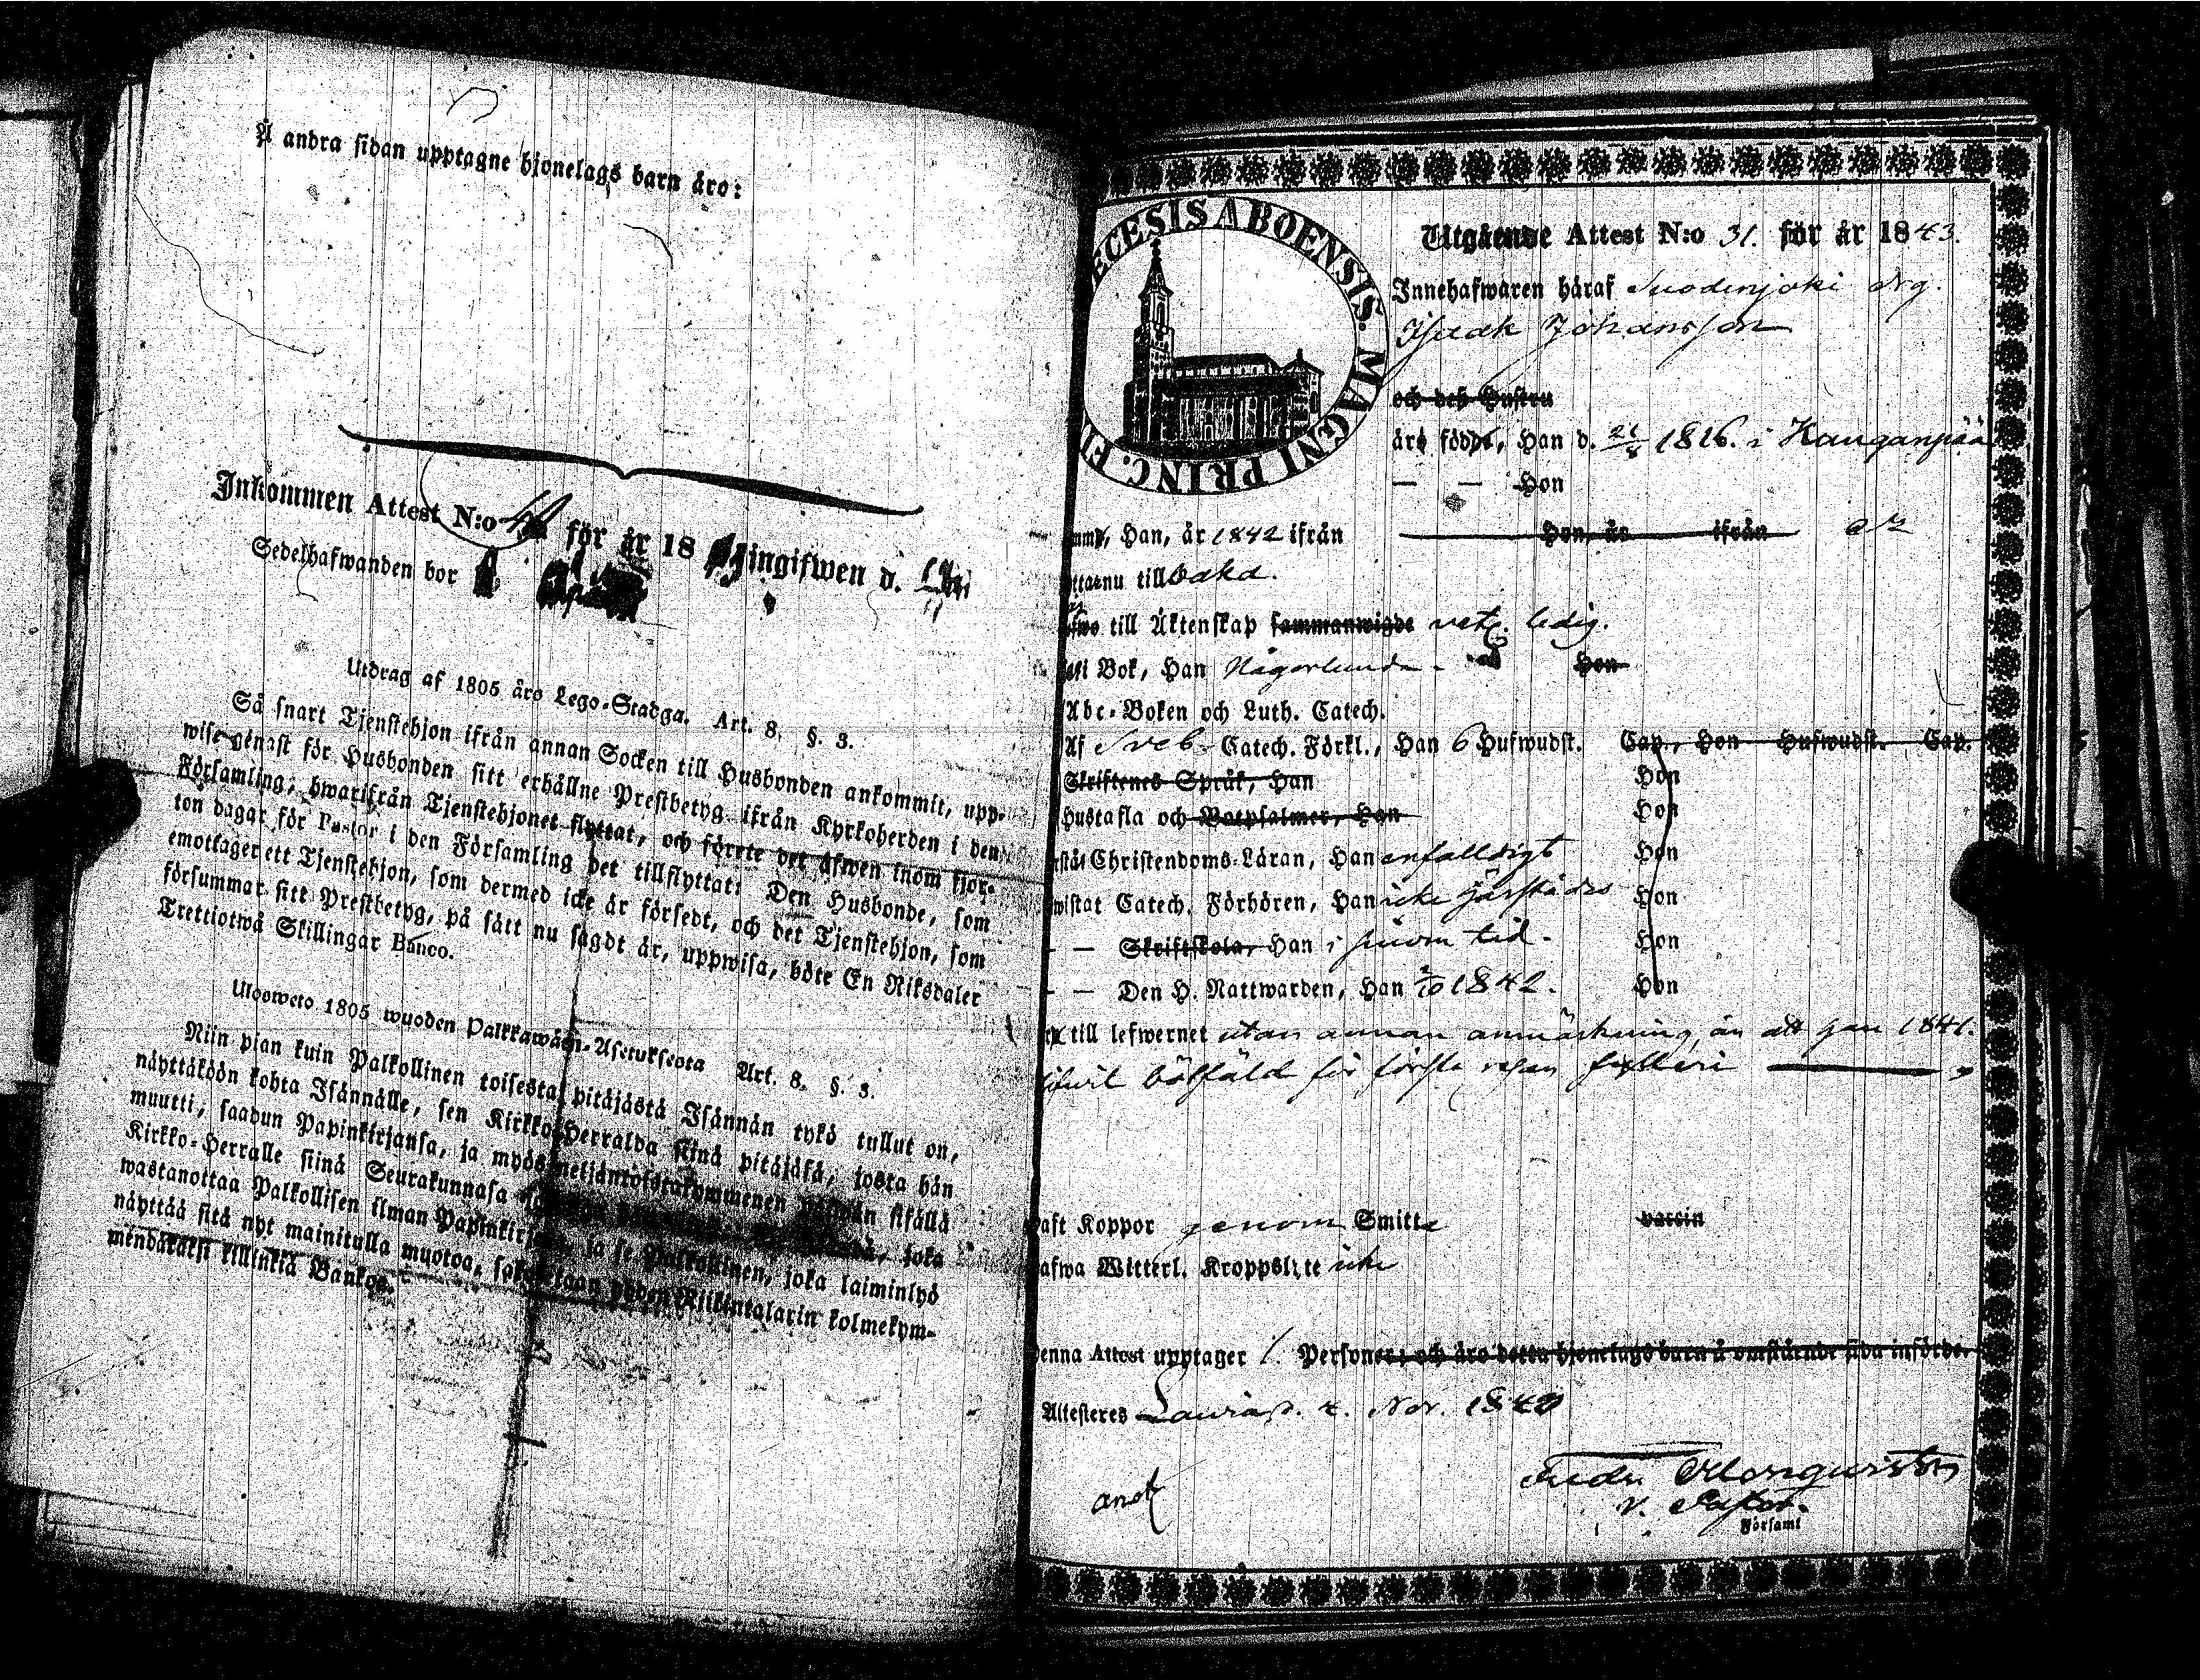 Å andra sidan upptagne hjonelags barn äro:
Inkommen Attest N:o för år 18 ingifwen d.
Sedelhafwanden bor
Utdrag af 1805 års Lego-Stadga. Art. 8. §. 3.
Så snart Tjenstehjon ifrån annan Socken till Husbonden ankommit, upp-
wise genast för Husbonden sitt erhållne Prestbetyg ifrån Kyrkoherden i den
Församling, hwarifrån Tjenstehjonet flyttat, och förete det äfwen inom fjor-
ton dagar för Pastor i den Församling det tillflyttat. Den Husbonde, som
emottager ett Tjenstehjon, som dermed icke är försedt, och det Tjenstehjon, som
försummar sitt Prestbetyg, på sätt nu sagdt är, uppwisa, böte En Riksdaler
Trettiotwå Skillingar Banco.
Ulosweto 1805 wuoden Palkkawäen-Asetuksesta Art. 8. §. 3.
Niin pian kuin Palkollinen toisesta pitäjästä Isännän tykö tullut on,
näyttäköön kohta Isännälle, sen Kirkko-Herralda siinä pitäjäsä, josta hän
muutti, saadun Papinkirjansa, ja myös neljäntoistakymmenen päiwän sisällä
Kirkko-Herralle siinä Seurakunnasa joka
wastanottaa Palkollisen ilman Papinkirjata, ja se Palkollinen, joka laiminlyö
näyttää sitä nyt mainitulla muotoa, yhden Riikintalarin kolmekym-
mendäkaksi killinkiä Bankos.
DIECESIS ABOENSIS. MAGNI PRINC. FI
Utgående Attest N:o 31. för år 1843.
Innehafwaren häraf Suodenjoki drg.
Isaak Johansson
och deß Hustru
äro födde, Han d. 1816. i Kanganpää
— — Hon
Han, år 1842 ifrån Hon, år ifrån
nu tillbaka.
till Äktenskap sammanwigde ledig.
i Bok, Han Någorlunda. Hon
Abc-Boken och Luth. Catech.
Af Sveb. Catech. Förkl., Han 6 Hufwudst. Cap., Hon Hufwudst. Cap.
Skriftenes Språk, Han Hon
Hustafla och Botpsalmer, Han Hon
Christendoms-Läran, Han enfaldigt Hon
wistat Catech. Förhören, Han icke härstädes Hon
— — Skriftskola, Han i sinom tid. Hon
— — Den H. Nattwarden, Han 1842. Hon
till lefwernet utan annan anmärkning, än att han 1841.
blifwit bötfäld för första resan fylleri
haft Koppor genom Smitta vaccin
hafwa Witterl. Kroppslyte icke
Denna Attest upptager 1. Personer: och äro detta hjonelags barn å omstående sida införde.
Attesteres Lawia d. 4. Nov. 1842
v. Pastor.
Församl